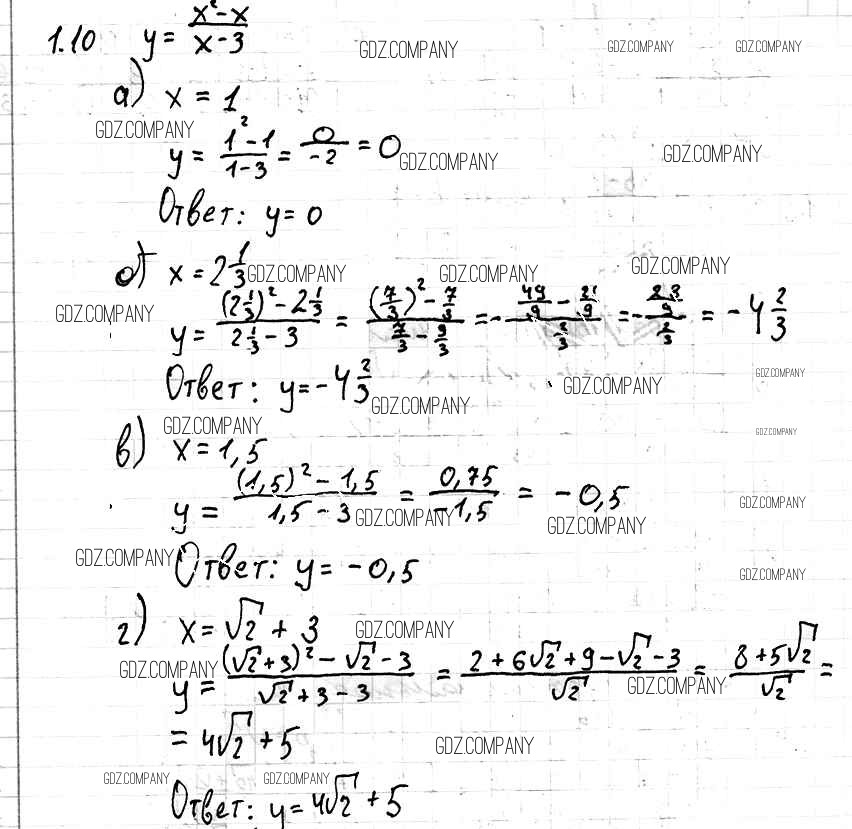 1.10 y = (x² - x)/(x - 3)
GDZ.COMPANY GDZ.COMPANY GDZ.COMPANY
а) x = 1
GDZ.COMPANY
y = (1² - 1)/(1 - 3) = 0/(-2) = 0
GDZ.COMPANY GDZ.COMPANY
Ответ: y = 0
б) x = 2 1/3
GDZ.COMPANY GDZ.COMPANY GDZ.COMPANY
GDZ.COMPANY
y = ((2 1/3)² - 2 1/3)/(2 1/3 - 3) = ((7/3)² - 7/3)/(7/3 - 9/3) = -(49/9 - 21/9)/(2/3) = -(23/9)/(2/3) = -4 2/3
Ответ: y = -4 2/3
GDZ.COMPANY GDZ.COMPANY
GDZ.COMPANY
GDZ.COMPANY GDZ.COMPANY
в) x = 1,5
y = ((1,5)² - 1,5)/(1,5 - 3) = 0,75/(-1,5) = -0,5
GDZ.COMPANY GDZ.COMPANY GDZ.COMPANY
GDZ.COMPANY
Ответ: y = -0,5
GDZ.COMPANY
г) x = √2 + 3
GDZ.COMPANY
GDZ.COMPANY
y = ((√2+3)² - √2 - 3)/(√2 + 3 - 3) = (2 + 6√2 + 9 - √2 - 3)/√2 = (8 + 5√2)/√2 =
GDZ.COMPANY
= 4√2 + 5
GDZ.COMPANY
GDZ.COMPANY GDZ.COMPANY
Ответ: y = 4√2 + 5